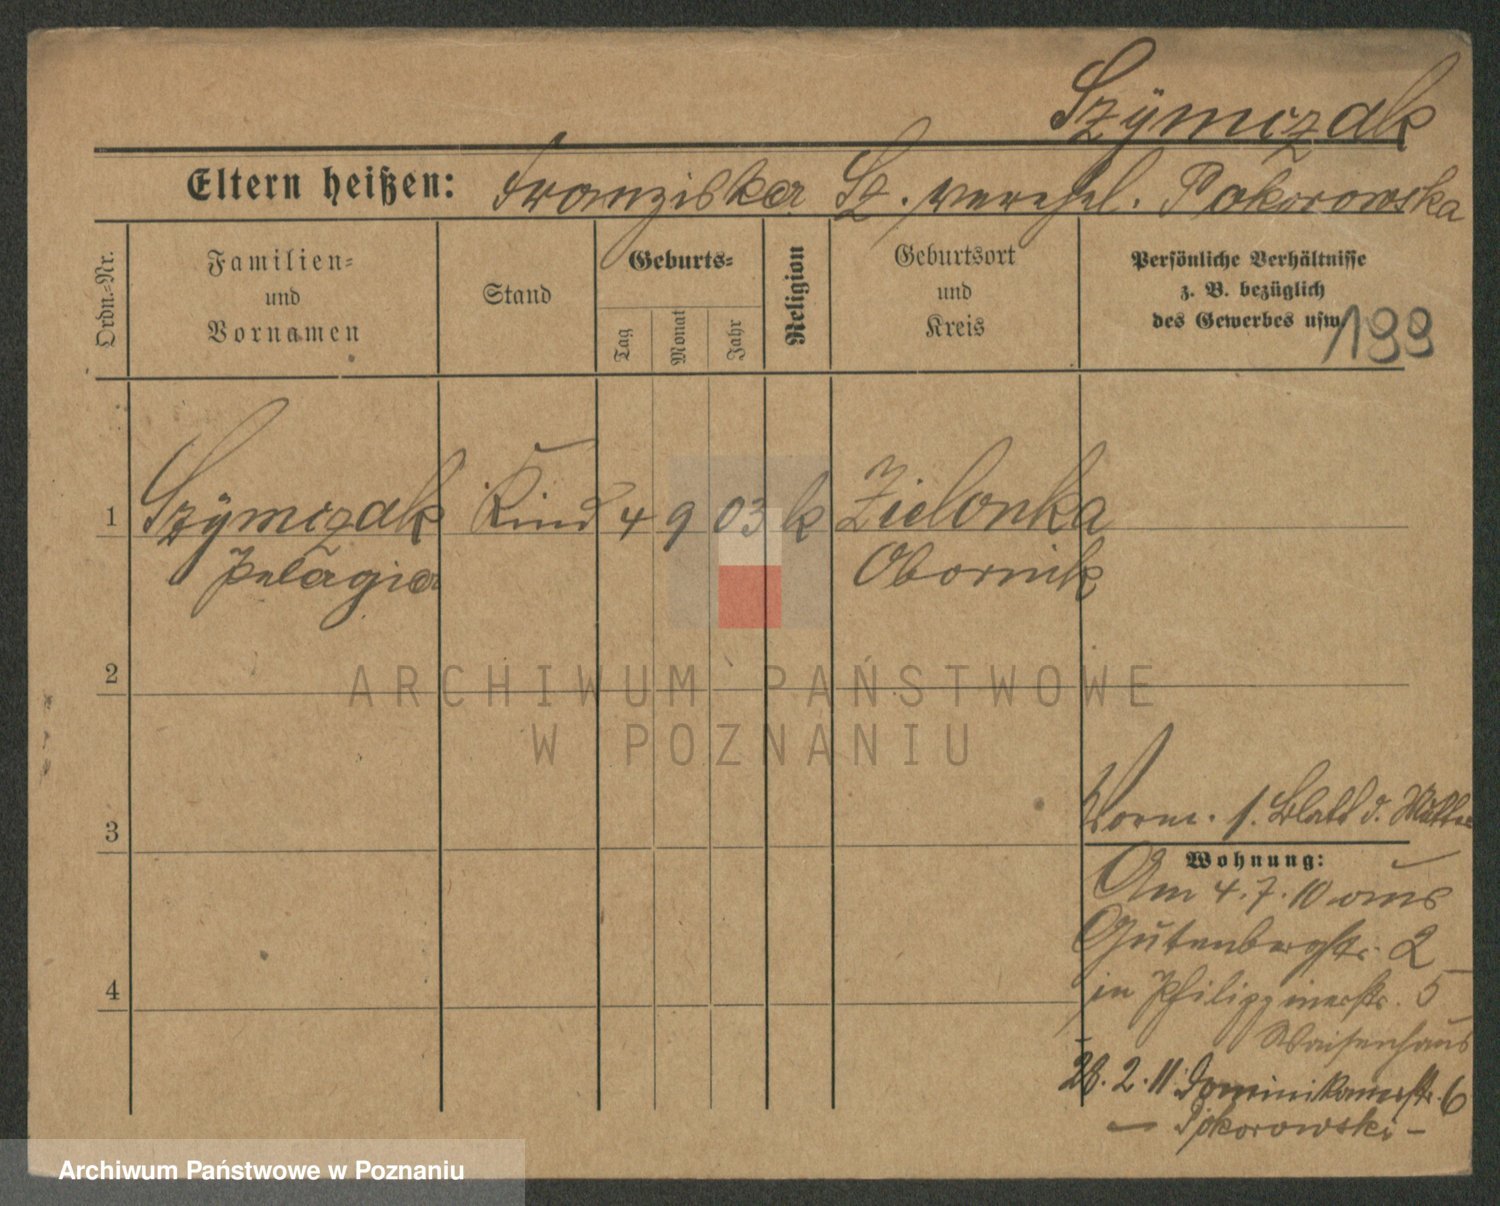 Szymczak
Eltern heißen: Franziska Sz. verehel. Pokorowska
Ordn.-Nr.
Familien-
und
Vornamen
Stand
Geburts-
Tag
Monat
Jahr
Religion
Geburtsort
und
Kreis
Persönliche Verhältnisse
z. B. bezüglich
des Gewerbes usw.
199
1 Szymczak Kind 4 9 03 k Zielonka
Pelagia Obornik
2
ARCHIWUM PAŃSTWOWE
W POZNANIU
3
Vorm. s. Blatt d. Mutter
Wohnung:
Am 4.7.10 aus
Gutenbergstr. 2
in Philippinerstr. 5
Waisenhaus
4
28.2.11 Dominikanerstr. 6
— Pokorowski —
Archiwum Państwowe w Poznaniu